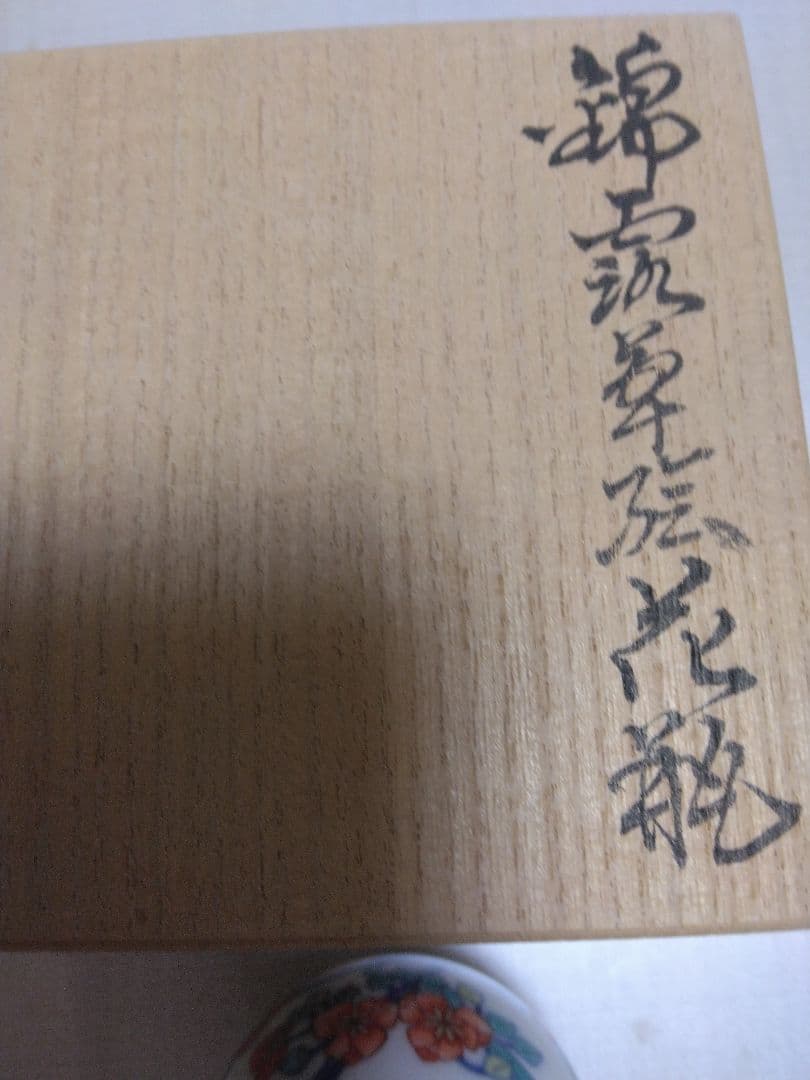 錦露草絵花瓶